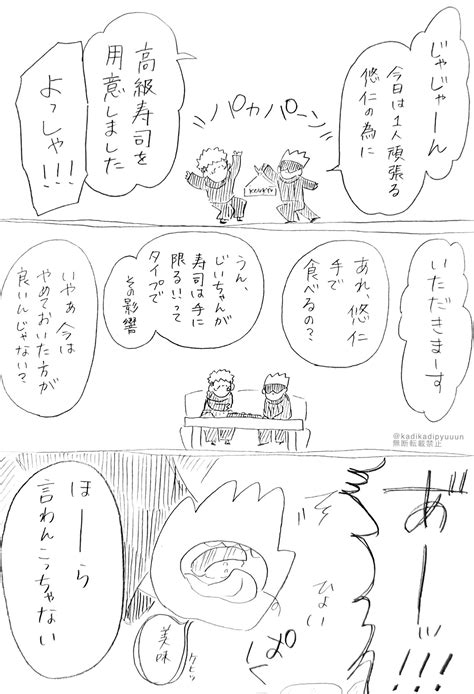 じゃじゃーん
今日は1人頑張る
悠仁の為に
パカパーン
高級寿司を
用意しました
よっしゃ!!!
いただきまーす
あれ、悠仁
手で
食べるの?
うん、
じいちゃんが
寿司は手に
限る!!って
タイプで
その影響
いやぁ 今は
やめておいた方が
良いんじゃない?
@kadikadipyuuun
無断転載禁止
あ゛ーッ!!!
ひょい
ぱく
美味
ほーら
言わんこっちゃない